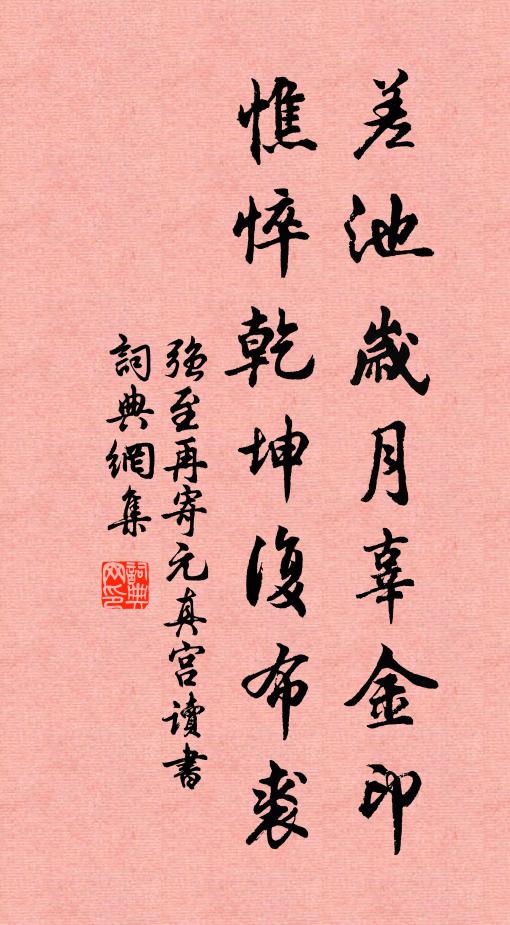 差池歲月辜金印
憔悴乾坤復布裘
強至再寄元真宫讀書
詞典網集
詞典網印